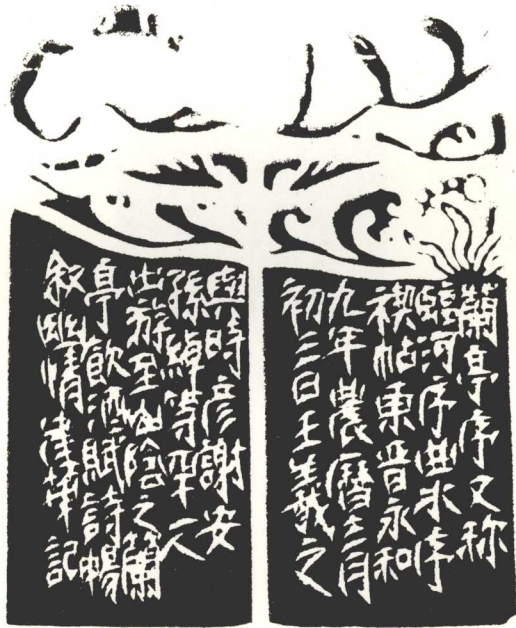 蘭亭序又称
臨河序曲水序
禊帖東晋永和
九年農曆三月
初三日王羲之
與時彦謝安
孫綽等人
出游至山陰之蘭
亭飲酒賦詩暢
叙幽情記